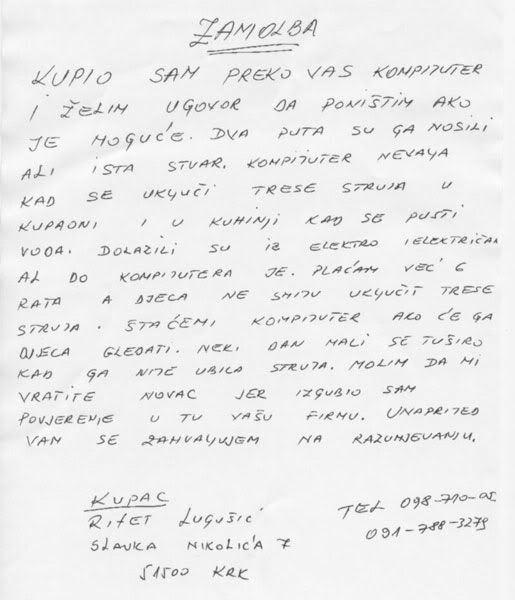 ZAMOLBA
KUPIO SAM PREKO VAS KOMPIJUTER
I ŽELIM UGOVOR DA PONIŠTIM AKO
JE MOGUĆE. DVA PUTA SU GA NOSILI
ALI ISTA STVAR. KOMPIJUTER NEVAYA
KAD SE UKLJUČI TRESE STRUJA U
KUPAONI I U KUHINJI KAD SE PUSTI
VODA. DOLAZILI SU IZ ELEKTRO I ELEKTRIČAR
AL DO KOMPIJUTERA JE. PLAĆAM VEĆ 6
RATA A DJECA NE SMIJU UKLJUČIT TRESE
STRUJA. ŠTA ĆEMI KOMPIJUTER AKO ĆE GA
DJECA GLEDATI. NEKI DAN MALI SE TUŠIRO
KAD GA NIJE UBILA STRUJA. MOLIM DA MI
VRATITE NOVAC JER IZGUBIO SAM
POVJERENJE U TU VAŠU FIRMU. UNAPRIJED
VAM SE ZAHVALJUJEM NA RAZUMJEVANJU.
KUPAC
RIFET LUGUŠIĆ
SLAVKA NIKOLIĆA 7
51500 KRK
TEL 098-710-05
091-788-3279